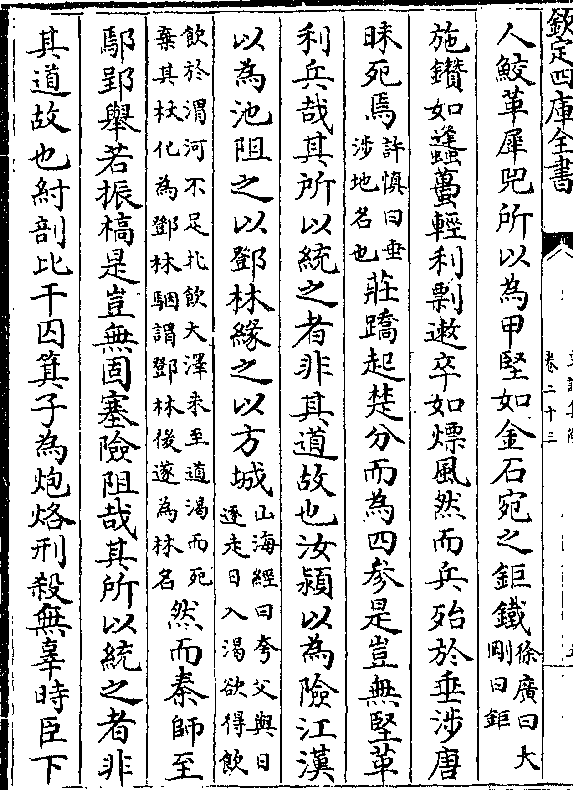 欽定四庫全書
卷二十三
人鮫革犀兕所以為甲堅如金石宛之鉅鐵徐廣曰大剛曰鉅
施鑽如蠭蠆輕利剽遬卒如熛風然而兵殆於垂涉唐
昧死焉許慎曰垂涉地名也莊蹻起楚分而為四參是豈無堅革
利兵哉其所以統之者非其道故也汝潁以為險江漢
以為池阻之以鄧林緣之以方城山海經曰夸父與日逐走日入渴欲得飲
飲於渭河不足北飲大澤未至道渴而死棄其杖化為鄧林駰謂鄧林後遂為林名然而秦師至
鄢郢舉若振槁是豈無固塞險阻哉其所以統之者非
其道故也紂剖比干囚箕子為炮烙刑殺無辜時臣下